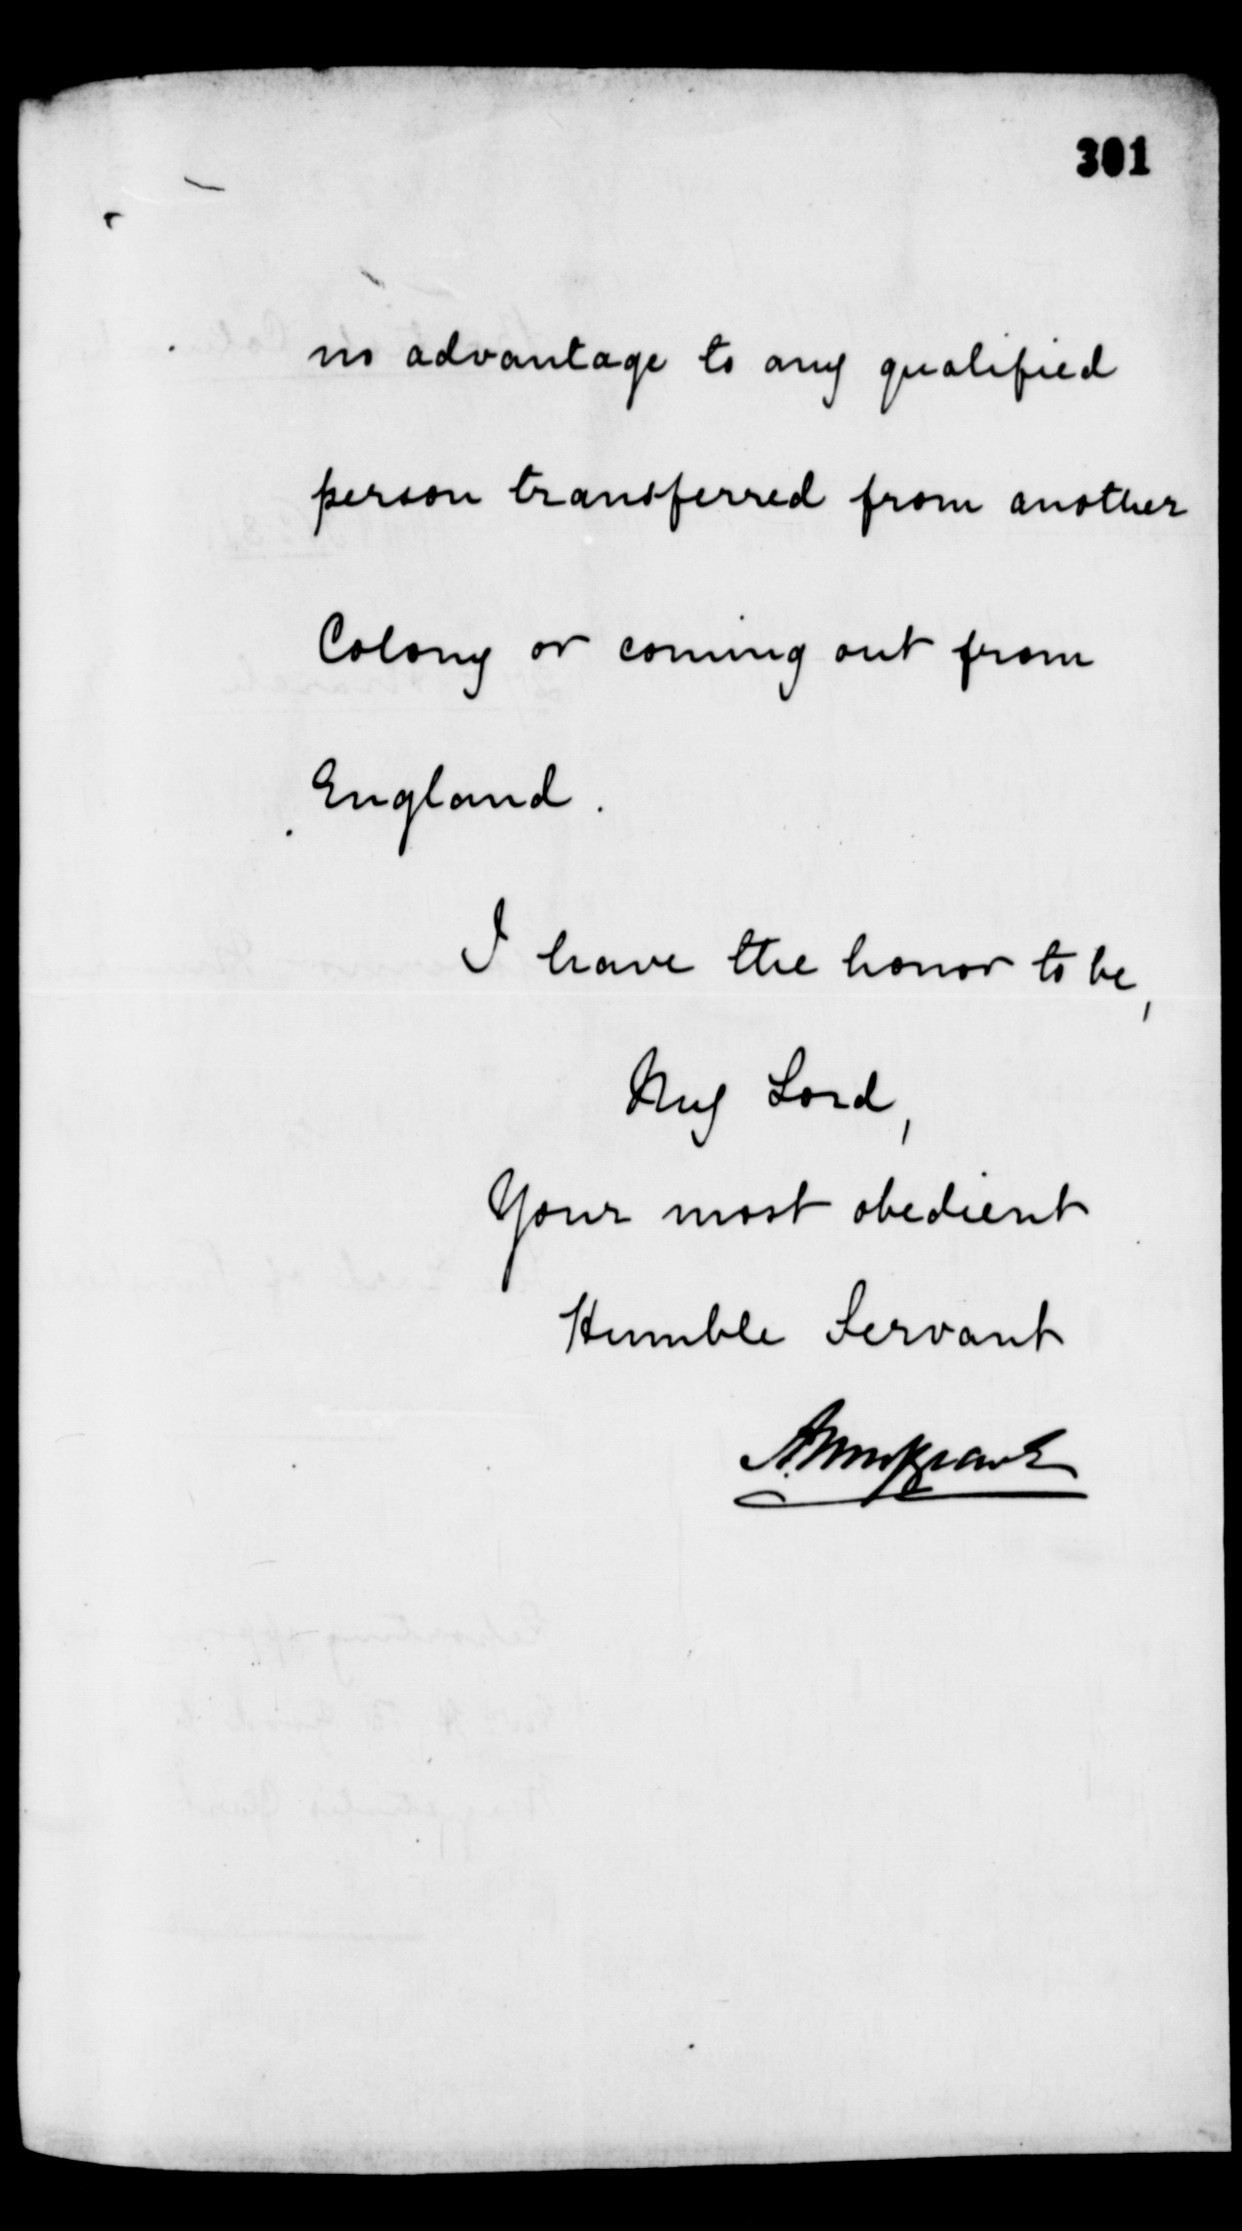 301
no advantage to any qualified
person transferred from another
Colony or coming out from
England.
I have the honor to be,
My Lord,
Your most obedient
Humble Servant
A. Musgrave